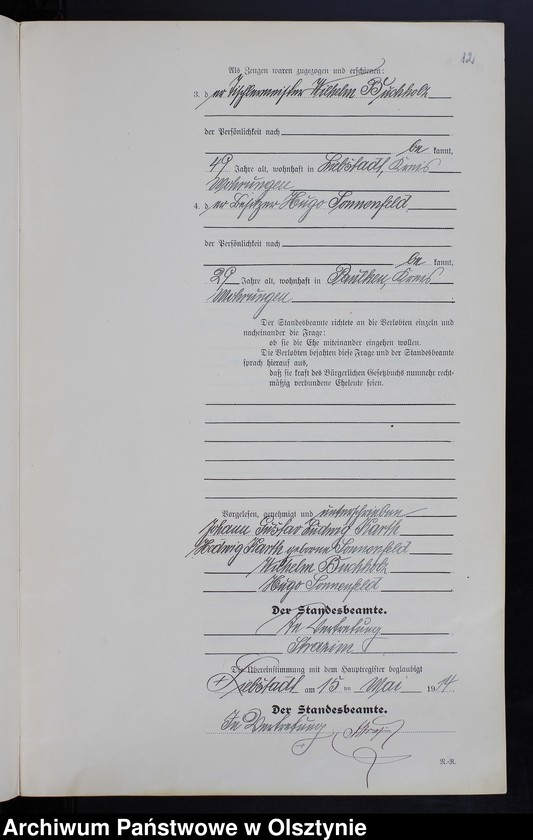 12
Als Zeugen waren zugezogen und erschienen:
3. der Tischlermeister Wilhelm Buchholz
der Persönlichkeit nach
be kannt,
49 Jahre alt, wohnhaft in Liebstadt, Kreis
Mohrungen
4. der Besitzer Hugo Sonnenfeld
der Persönlichkeit nach
be kannt,
29 Jahre alt, wohnhaft in Paulken, Kreis
Mohrungen
Der Standesbeamte richtete an die Verlobten einzeln und
nacheinander die Frage:
ob sie die Ehe miteinander eingehen wollen.
Die Verlobten bejahten diese Frage und der Standesbeamte
sprach hierauf aus,
daß sie kraft des Bürgerlichen Gesetzbuchs nunmehr recht-
mäßig verbundene Eheleute seien.
Vorgelesen, genehmigt und unterschrieben
Johann Gustav Ludwig Karth
Karth geborene Sonnenfeld
Wilhelm Buchholz
Hugo Sonnenfeld
Der Standesbeamte.
In Vertretung
Die Übereinstimmung mit dem Hauptregister beglaubigt
Liebstadt am 15 ten Mai 1914
Der Standesbeamte.
In Vertretung
R.-R.
Archiwum Państwowe w Olsztynie